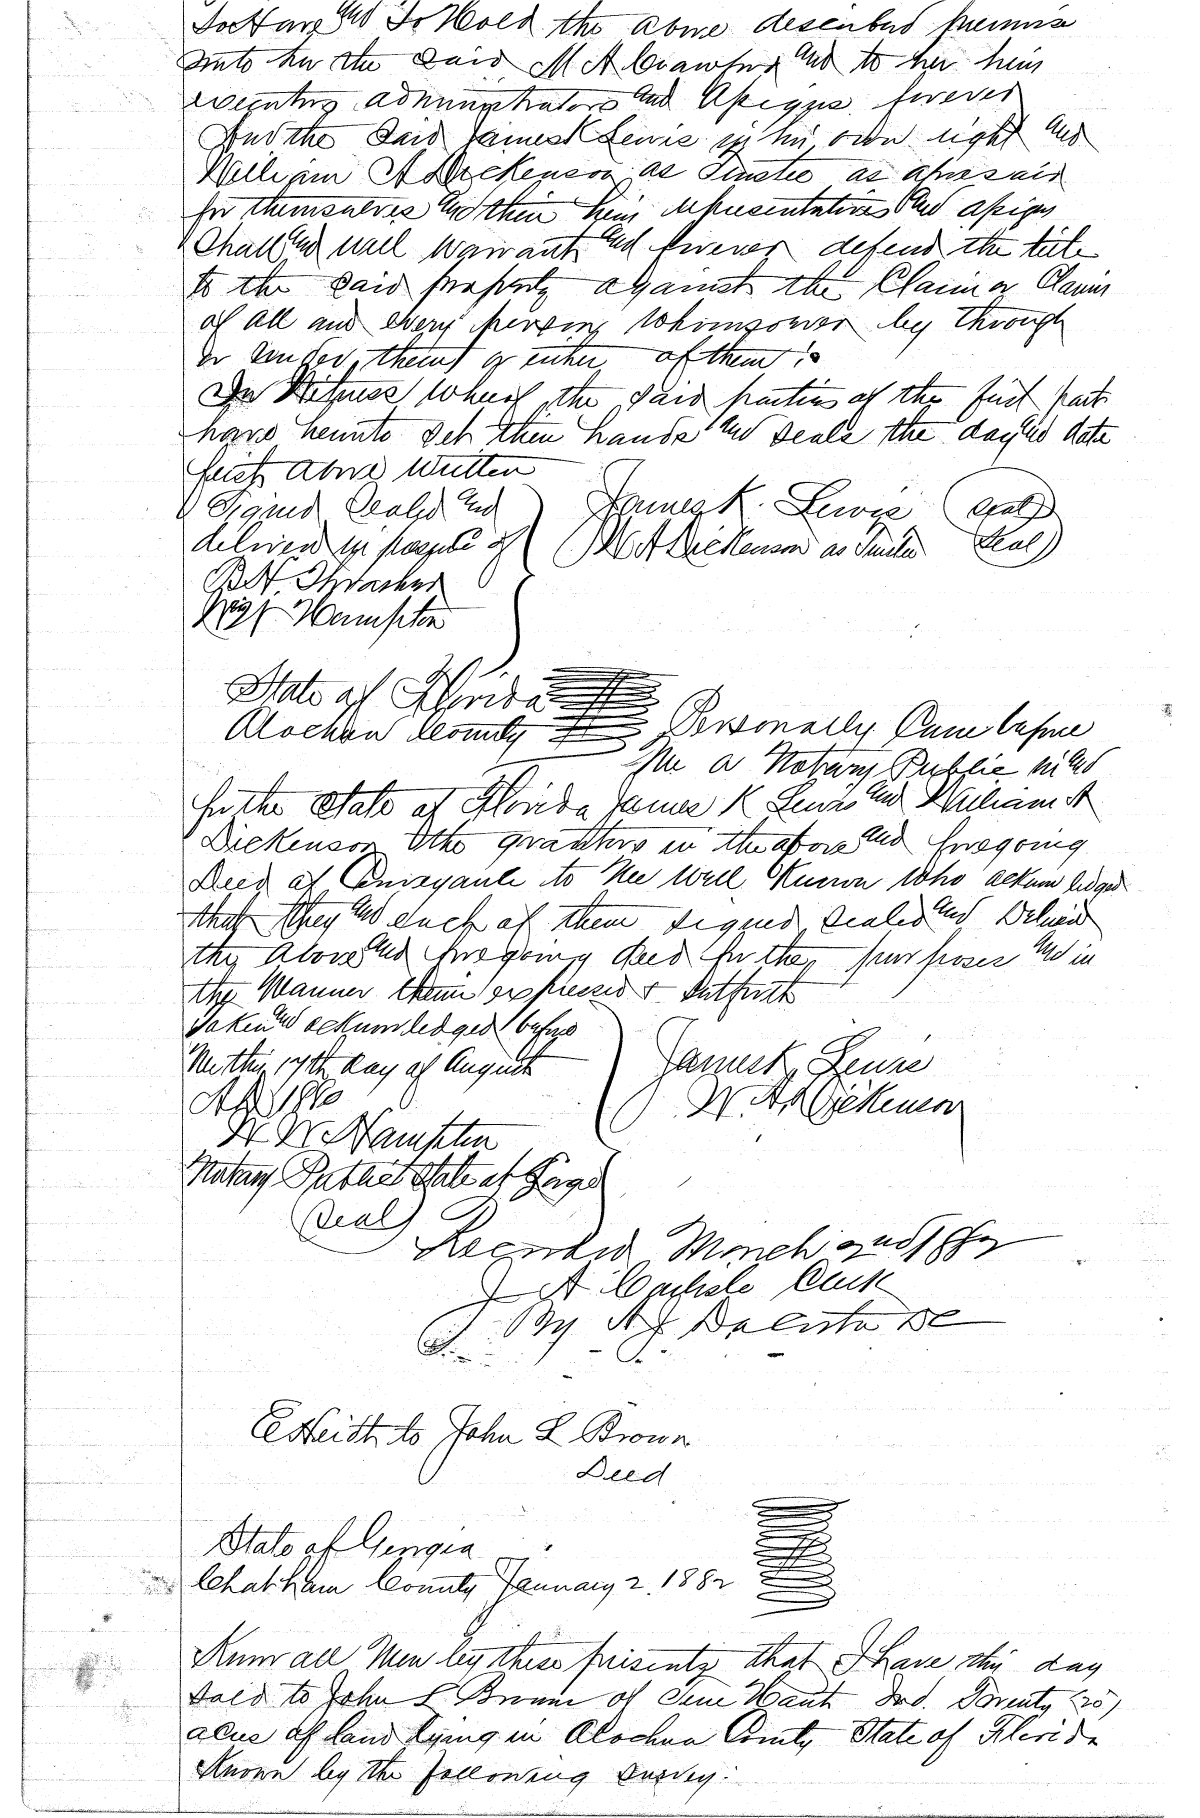 To Have and To Hold the above described premises
unto her the said M A Crawford and to her heirs
executors administrators and assigns forever
And the said James K Lewis in his own right and
William A Dickenson as Trustee as aforesaid
for themselves and their heirs representatives and assigns
Shall and will warrant and forever defend the title
to the said property against the Claim or Claims
of all and every persons whomsoever by through
or under them or either of them
In Witness whereof the said parties of the first part
have hereunto set their hands and seals the day and date
first above written
Signed Sealed and James K. Lewis (Seal)
delivered in presence of W A Dickenson as Trustee (Seal)
B N Thrasher
Hampton
State of Florida
Alachua County Personally Came before
Me a Notary Public in and
for the State of Florida James K Lewis and William A
Dickenson the grantors in the above and foregoing
Deed of Conveyance to Me well Known who acknowledged
that they and each of them signed sealed and Delivered
the above and foregoing deed for the purposes and in
the Manner therein expressed & Setforth
Taken and acknowledged before
Me this 17th day of August James K Lewis
AD W. A. Dickenson
W W Hampton
Notary Public State at Large
(Seal)
Recorded March 2nd
J A Carlisle Clerk
By DC
E Heidt to John L Brown
Deed
State of Georgia
Chatham County January 2. 1882
Know all Men by these presents that I have this day
sold to John L Brown of Ind. Twenty (20)
acres of land lying in Alachua County State of Florida
Known by the following survey: